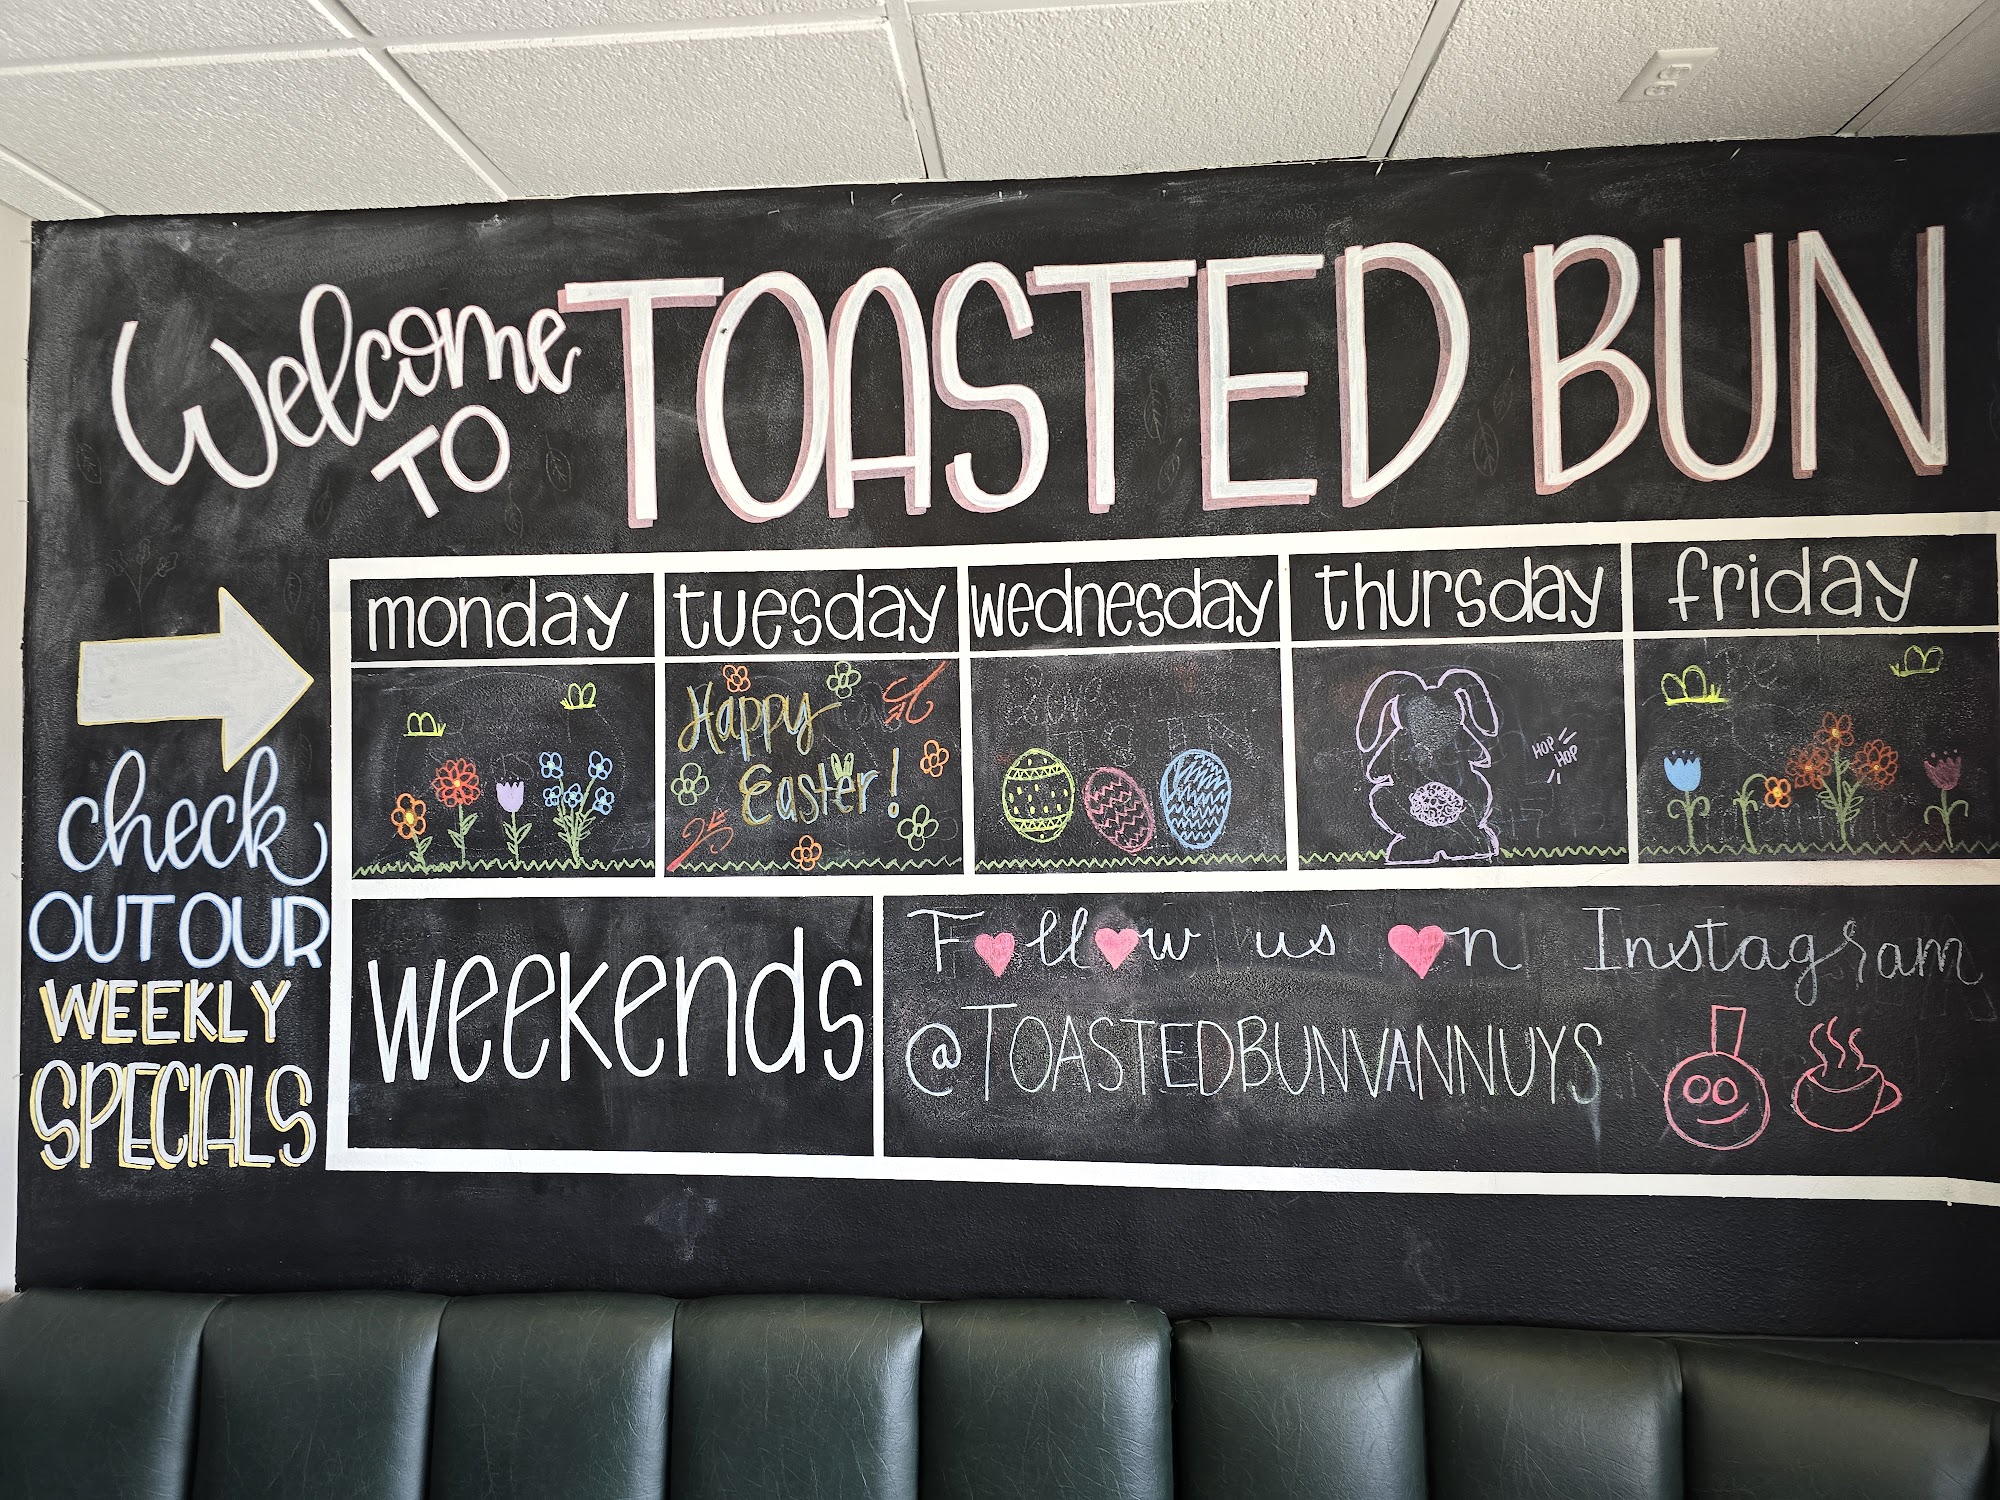 Welcome
TO
TOASTED BUN
monday
tuesday
wednesday
thursday
friday
Happy
Easter!
HOP
HOP
check
OUT OUR
WEEKLY
SPECIALS
weekends
Follow us on Instagram
@TOASTEDBUNVANNUYS